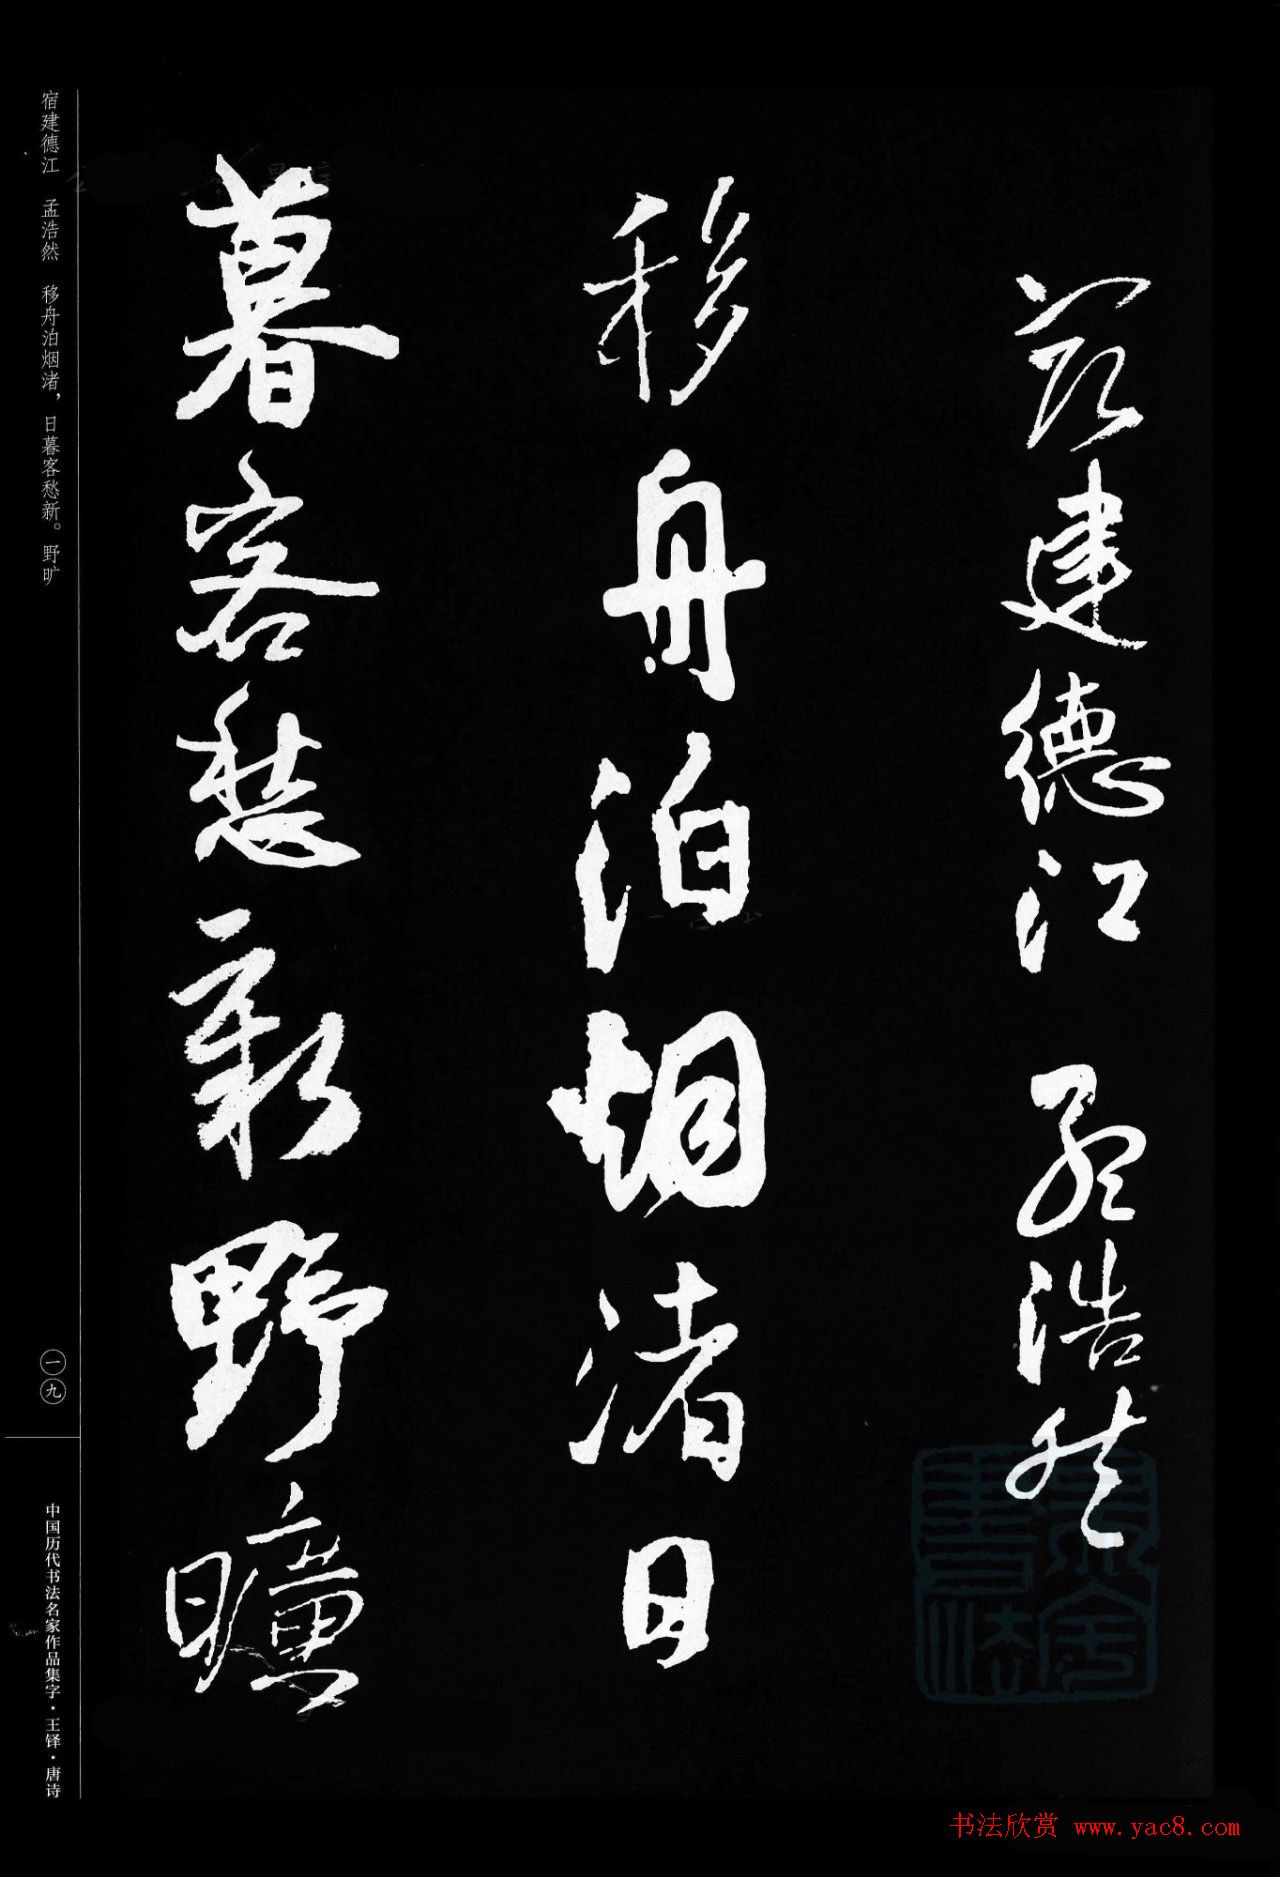 宿建德江 孟浩然
移舟泊烟渚日
暮客愁新野曠
宿建德江 孟浩然 移舟泊烟渚，日暮客愁新。野旷
一九
中国历代书法名家作品集字·王铎·唐诗
书法欣赏 www.yac8.com